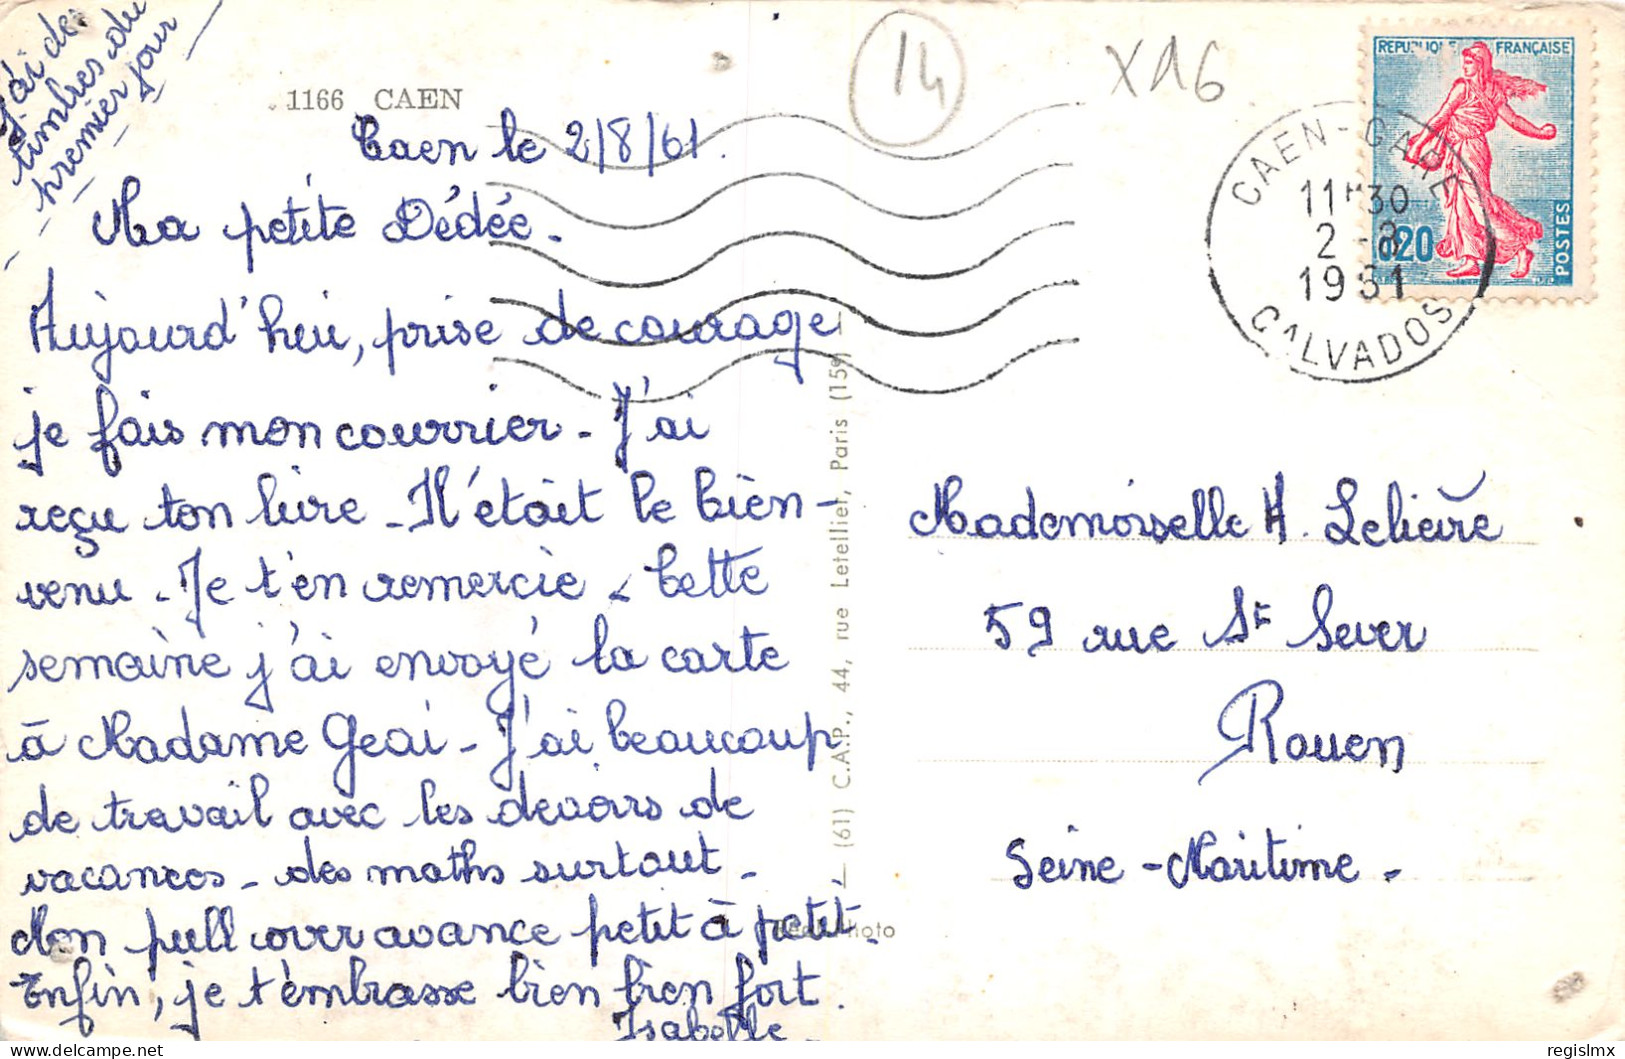 J'ai des
timbres du
premier jour
1166 CAEN
14
X16
REPUBLIQUE FRANÇAISE
0,20
POSTES
CAEN-GARE
11H30
2 -8
1961
CALVADOS
Caen le 2/8/61.
Ma petite Dédée.
Aujourd'hui, prise de courage
je fais mon courrier - J'ai
reçu ton livre - Il était le bien-
venu - Je t'en remercie - Cette
semaine j'ai envoyé la carte
à Madame Geai - J'ai beaucoup
de travail avec les devoirs de
vacances - des maths surtout -
Mon pull over avance petit à petit.
Enfin, je t'embrasse bien bien fort.
Isabelle
— (61) C.A.P., 44, rue Letellier, Paris (15e) —
Photo
Mademoiselle A. Lelièvre
59 rue St Sever
Rouen
Seine-Maritime -
regislmx